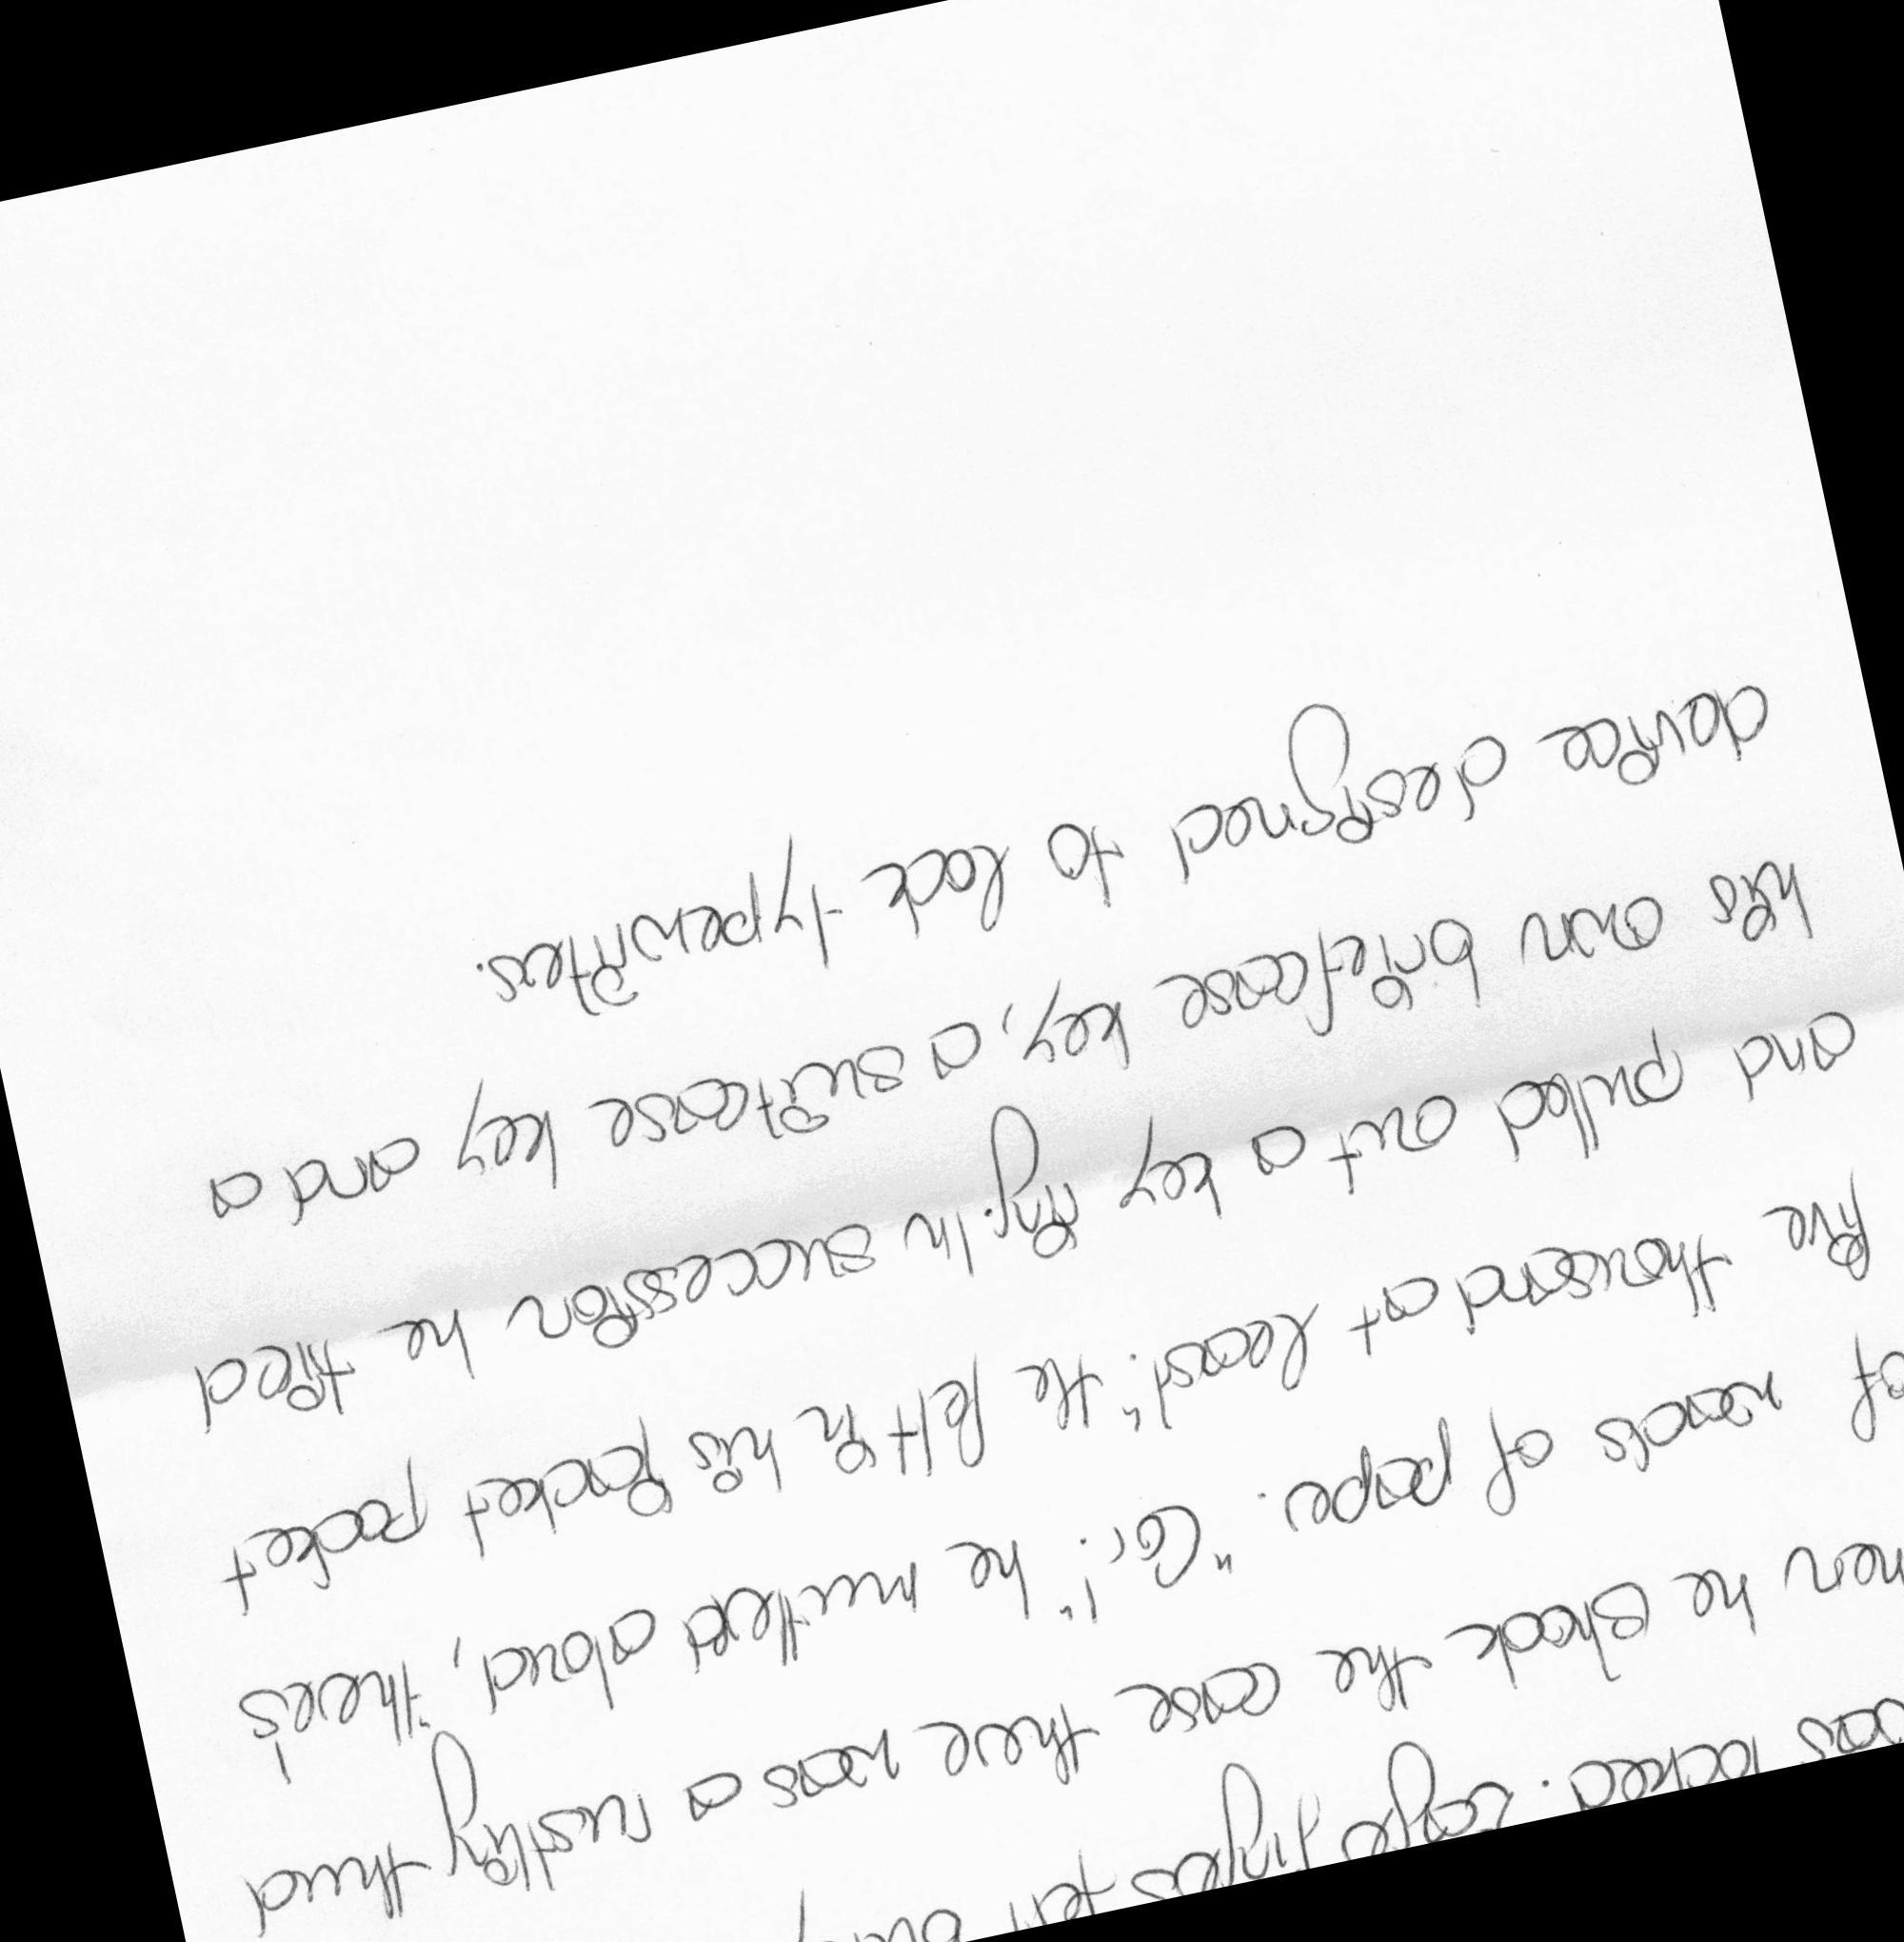 was locked. Eager fingers felt
he shook the case there was a rustling thud
of wads of paper. "Cor!" he muttered aloud, "there's
five thousand at least." He felt in his jacket pocket
and pulled out a key ring. In succession he tried
his own briefcase key, a suitcase key and a
device designed to lock typewriters.